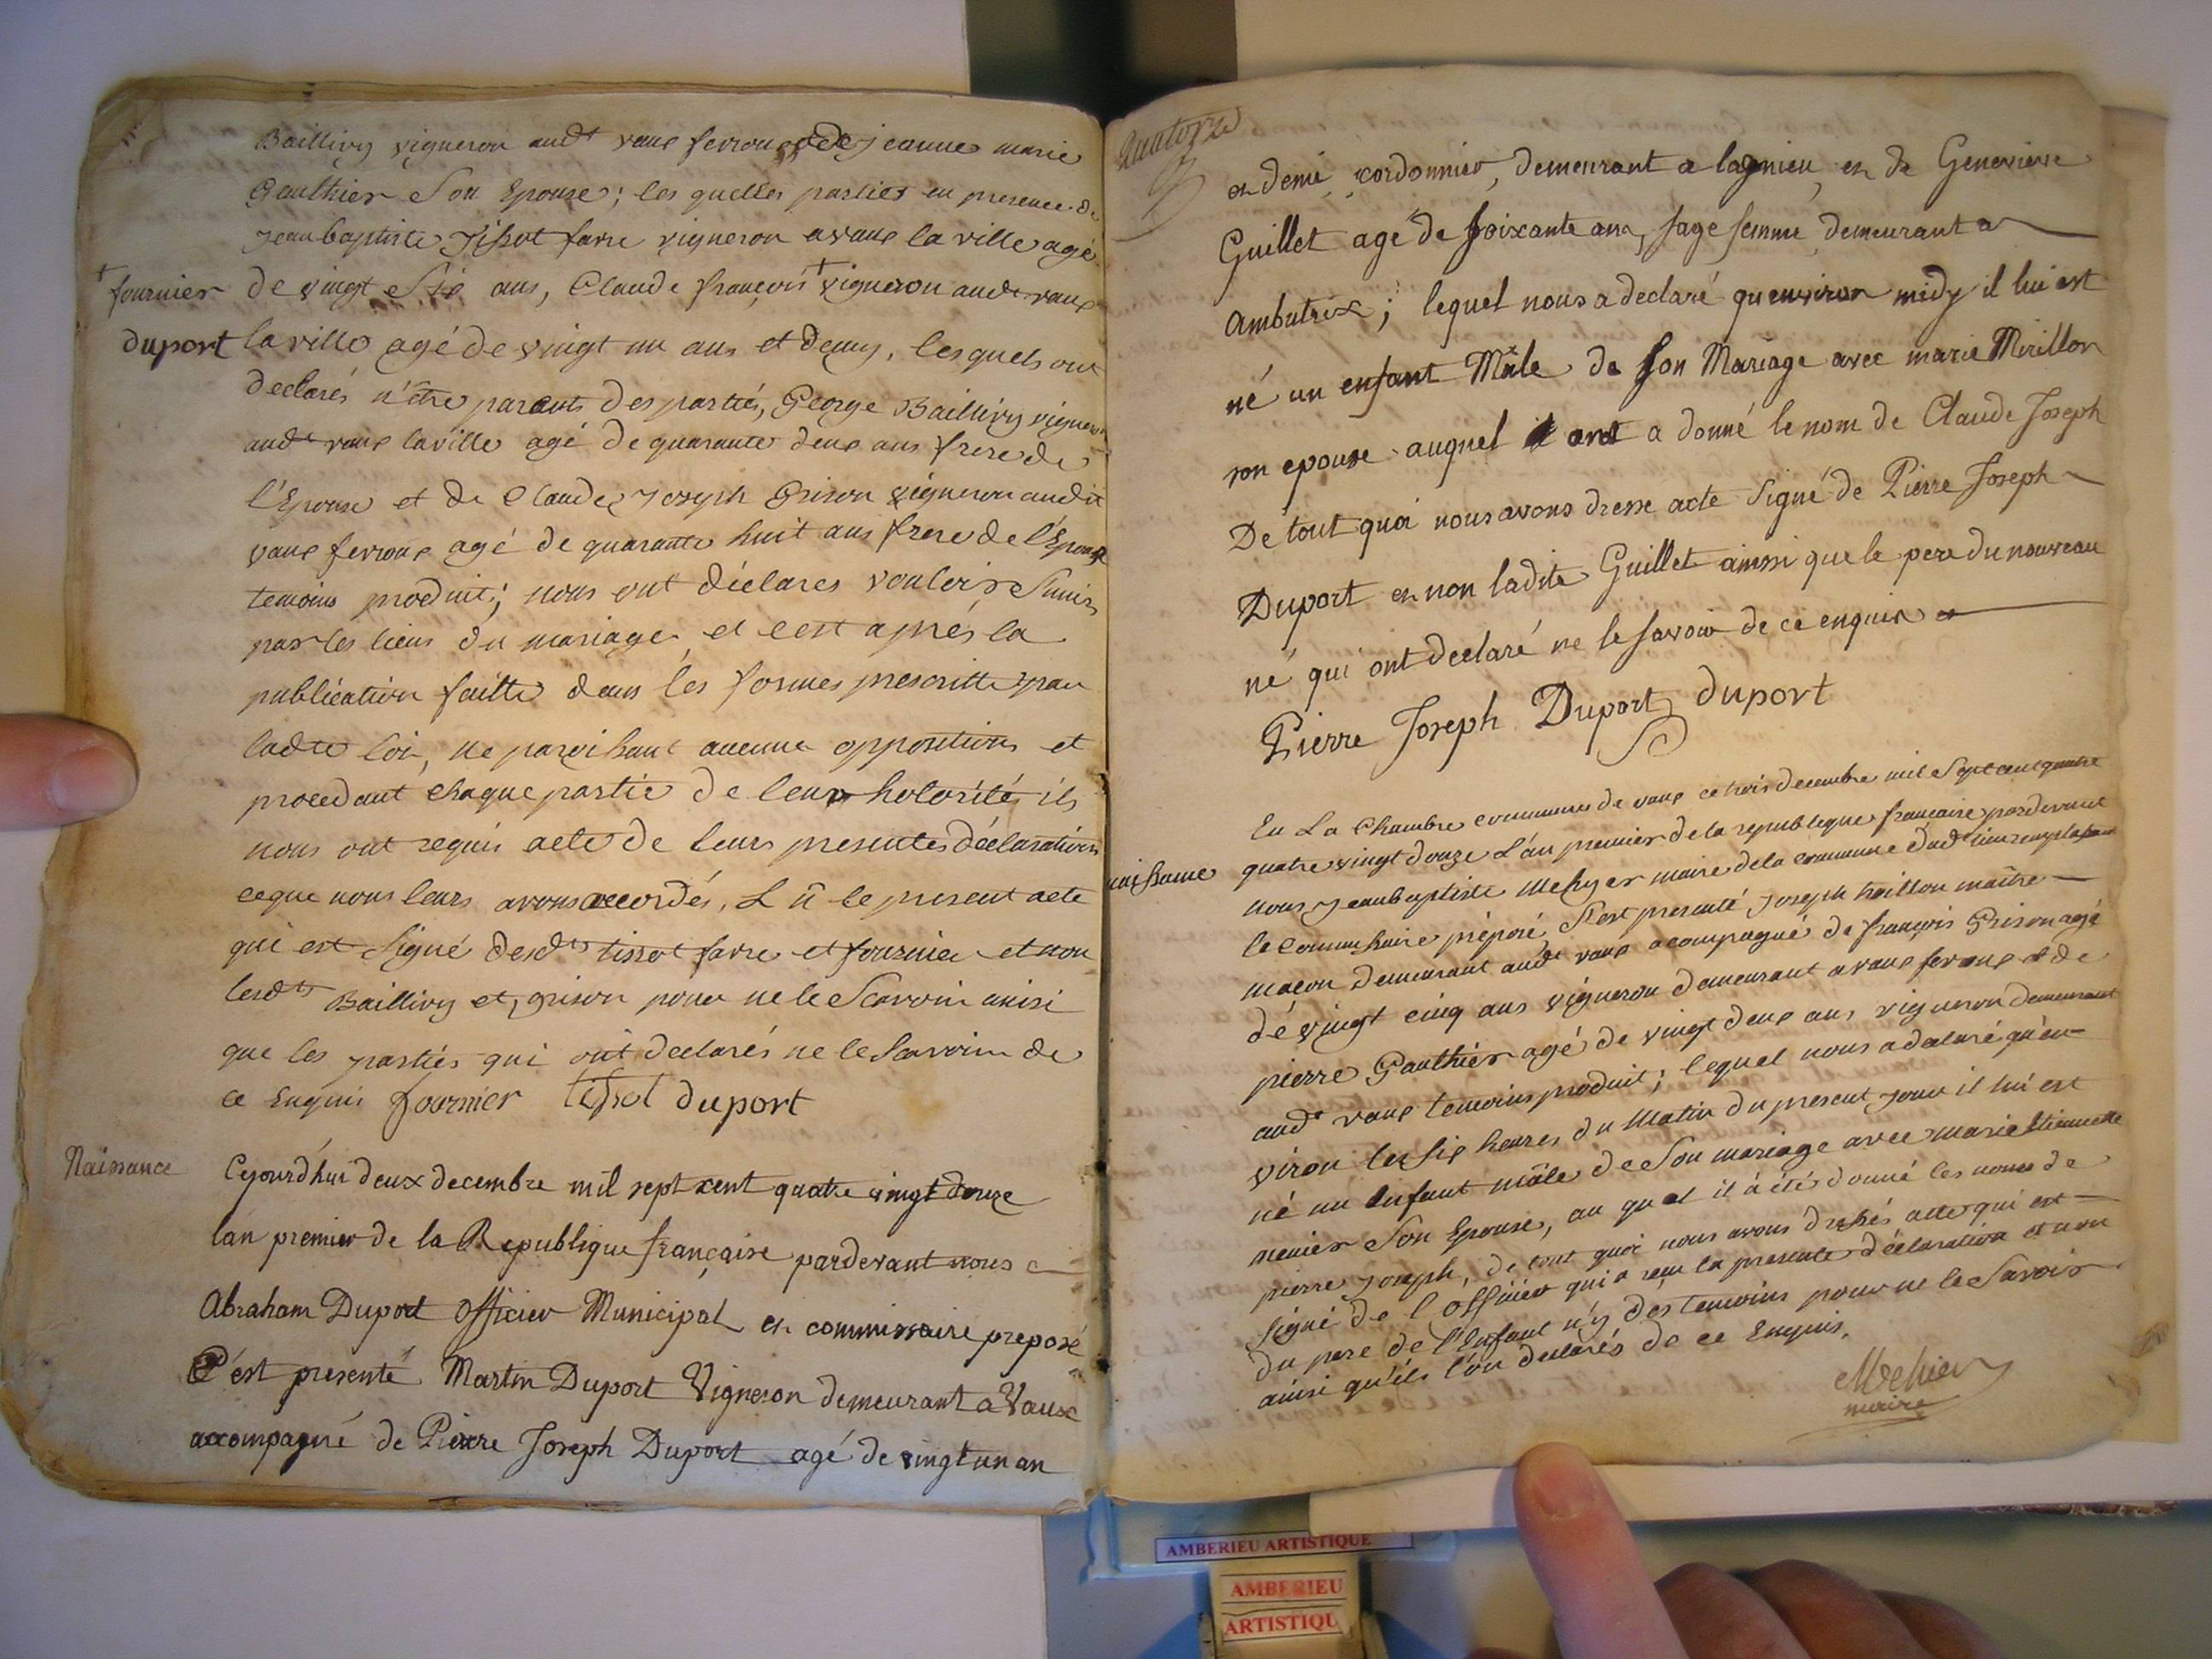 Baillivy vigneron audt vaux ferroux et de jeanne marie
Gauthier Son Epouse; les quelles parties en presence de
Jean baptiste Tissot favre vigneron a vaux la ville agé
† fournier
de vingt Six ans, Claude françois † vigneron audt vaux
duport
la ville agé de vingt un ans et demy, lesquels ont
declarés n'être parents des partiés, George Baillivy vigneron
audt vaux laville agé de quarante deux ans frere de
l'Epouse et de Claude Joseph Grison vigneron audit
vaux ferroux agé de quarante huit ans frere de l'Epouse
temoins produit; nous ont déclares vouloir s'unir
par les liens du mariage et cest après la
publication faitte dans les formes prescritte par
ladte loi, ne paroissant aucune oppositions et
procedant chaque partie de leur hotorité, ils
nous ont requis acte de leurs presentes déclarations
ce que nous leurs avons accordés, Lû le present acte
qui est signé desdts tissot favre et fournier et non
lesdts Baillivy et grison pour ne le Scavoir ainsi
que les partiés qui ont declarés ne le Savoir de
ce Enquis fournier tissot duport
Naissance
Cejourd'hui deux decembre mil sept cent quatre vingt douze
lan premier de la Republique française pardevant nous
Abraham Duport officier Municipal et commissaire preposé
S'est presenté Martin Duport Vigneron demeurant a Vaux
accompagné de Pierre Joseph Duport agé de vingt un an
Quatorze
et demi cordonnier, demeurant a lagnieu et de Genevieve
Guillet age de soixante ans, sage femme demeurant a
Ambutrix; lequel nous a declaré qu'environ midy il lui est
né un enfant Mâle de son Mariage avec marie Mirillon
son epouse auquel a donné le nom de Claude Joseph
De tout quoi nous avons dresse acte signé de Pierre Joseph
Duport et non ladite Guillet ainssi que le pere du nouveau
né qui ont declaré ne le savoir de ce enquis
Pierre Joseph Duport duport
naissance
En La Chambre commune de vaux ce trois decembre mil Sept cent quatre
quatre vingt douze L'an premier de la republique francaise pardevant
nous Jean baptiste Mehyer maire de la commune dudt lieu remplassant
le Commissaire préposé, S'est presenté Joseph troillon maître
macon demeurant audt vaux acompagné de françois Grison agé
dé vingt cinq ans vigneron demeurant a vaux feroux et de
pierre Gauthier agé de vingt deux ans vigneron demeurant
audt vaux temoins produit; lequel nous a declaré qu'en
viron les six heures du Matin du present jour il lui est
né un Enfant mâle de Son mariage avec marie Etiennette
menier Son Epouse, au quel il à été donné les noms de
pierre Joseph, de tout quoi nous avons dressés acte qui est
signé de l'officier qui a reçu la presente déclaration et non
du pere de l'Enfant n'y des temoins pour ne le Savoir
ainsi qu'ils l'on declarés de ce Enquis.
Mehier
maire
AMBERIEU ARTISTIQUE
AMBERIEU
ARTISTIQU